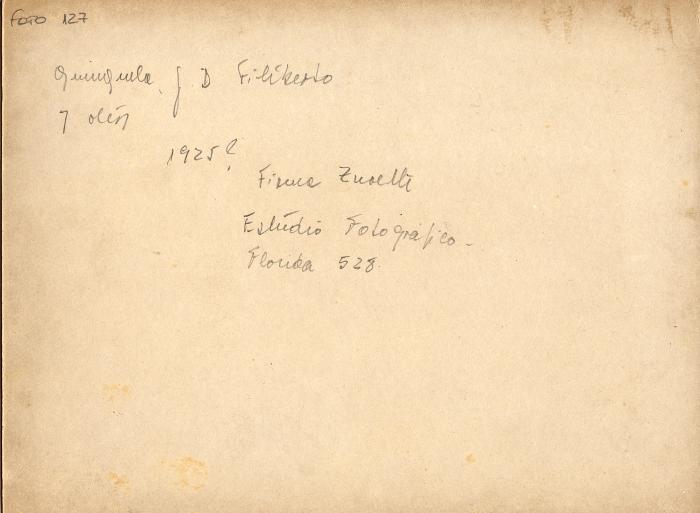 FOTO 127
Quinquela, J D Filiberto
7
1925?
Firma
Estudio Fotográfico -
Florida 528